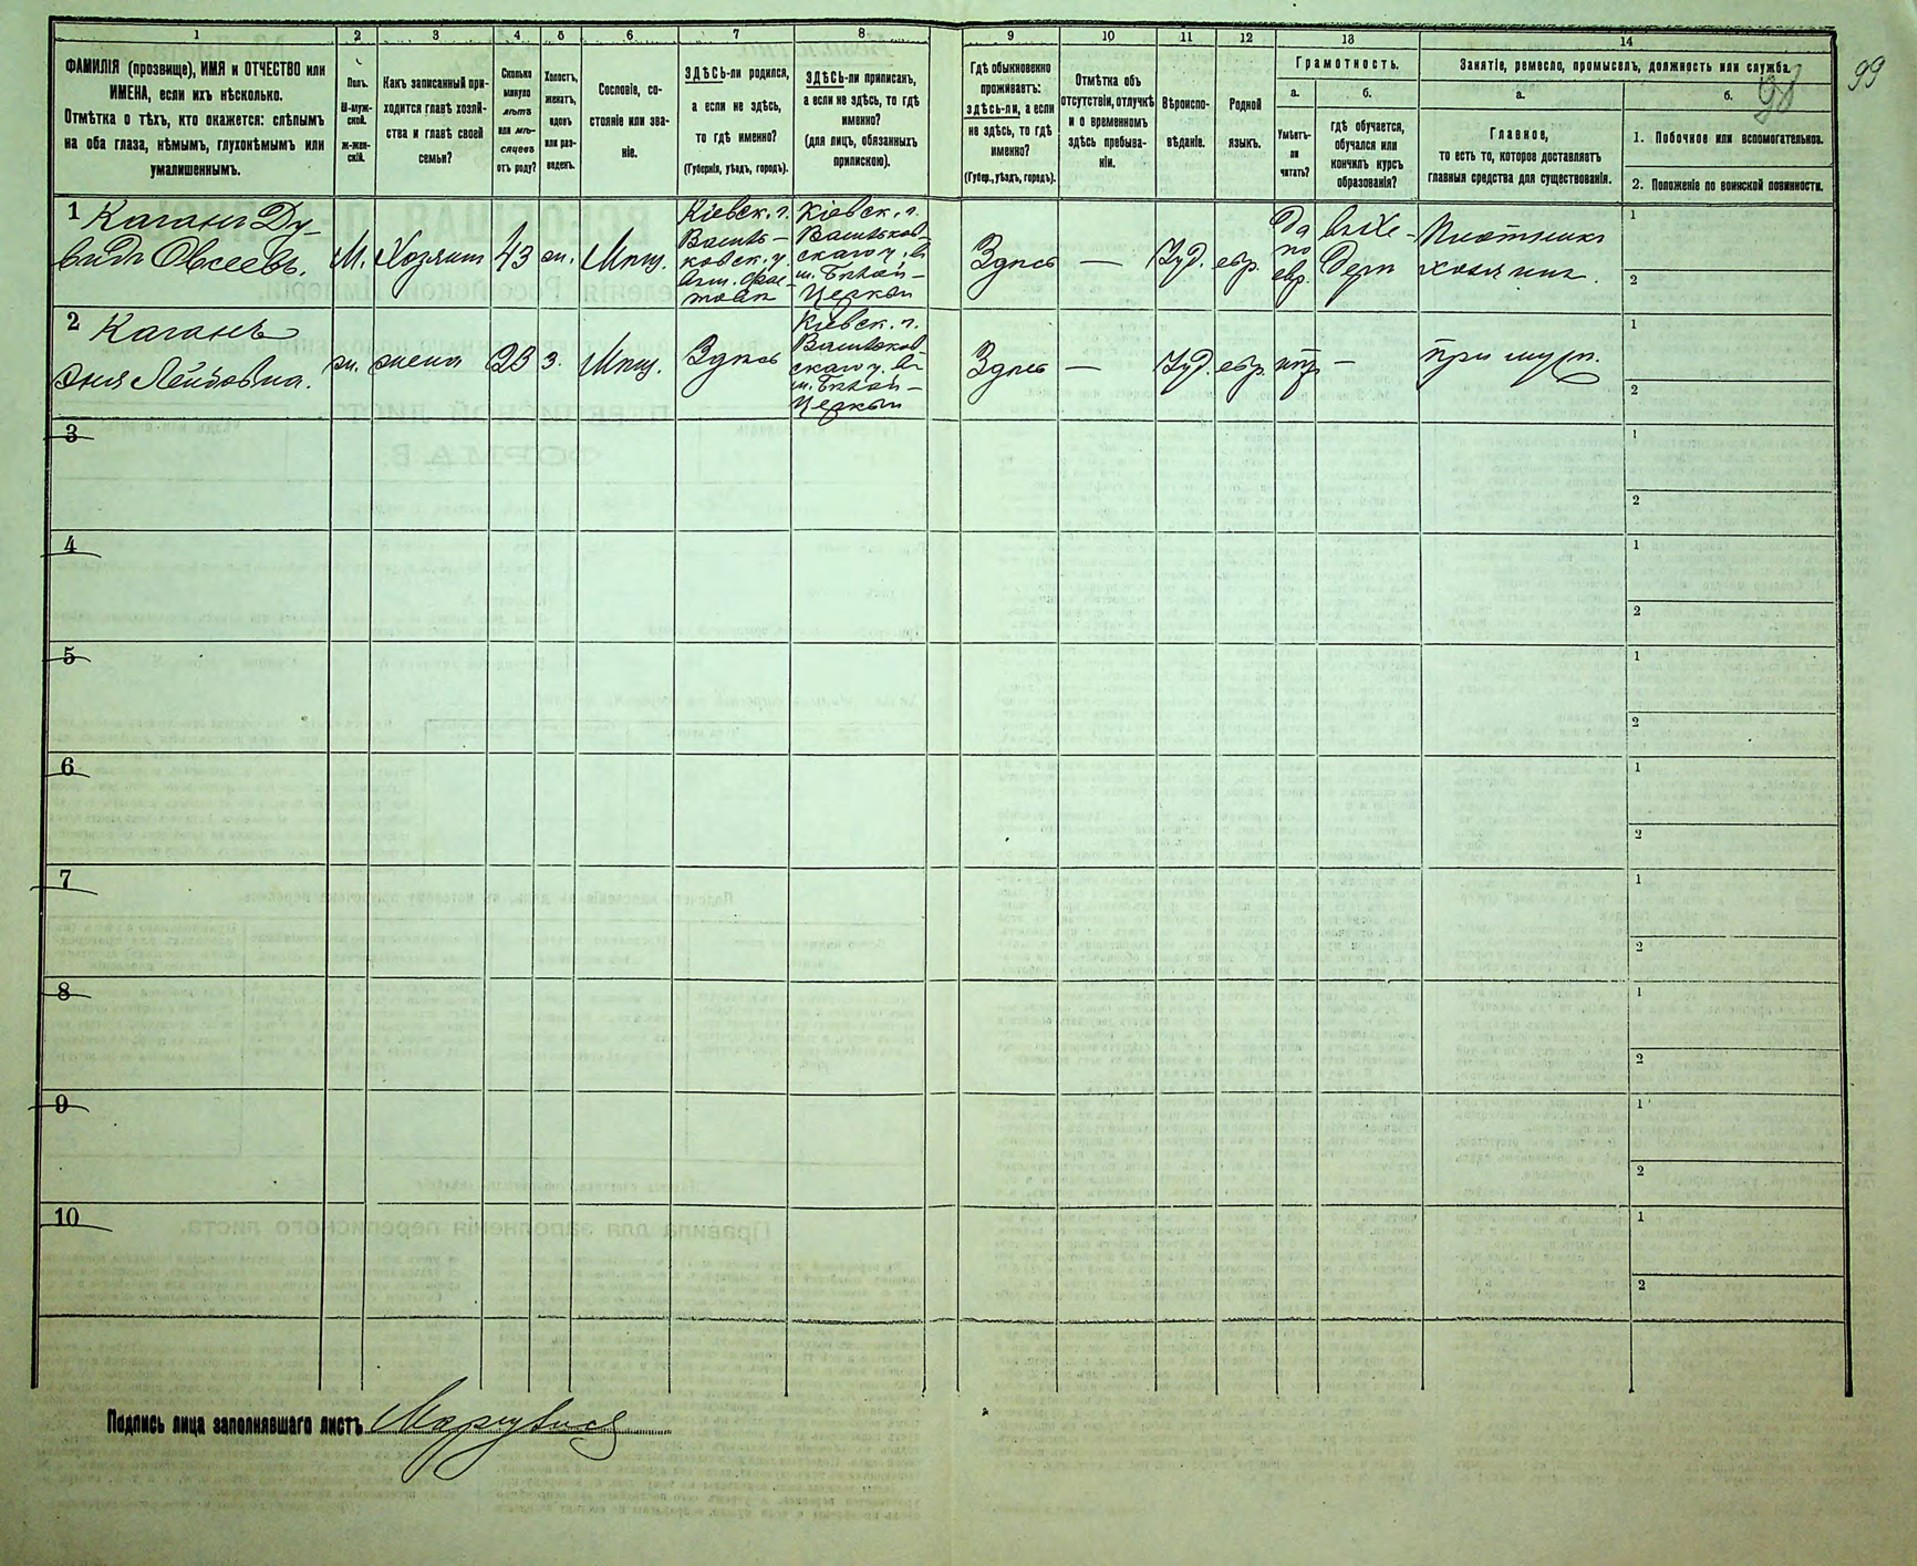 1
2
3
4
5
6
7
8
9
10
11
12
13
14
ФАМИЛІЯ (прозвище), ИМЯ и ОТЧЕСТВО или
ИМЕНА, если ихъ нѣсколько.
Отмѣтка о тѣхъ, кто окажется: слѣпымъ
на оба глаза, нѣмымъ, глухонѣмымъ или
умалишеннымъ.
Полъ.
М-муж-
ской.
ж-жен-
скій.
Какъ записанный при-
ходится главѣ хозяй-
ства и главѣ своей
семьи?
Сколько
минуло
лѣтъ
или мѣ-
сяцевъ
отъ роду?
Холостъ,
женатъ,
вдовъ
или раз-
веденъ.
Сословіе, со-
стояніе или зва-
ніе.
ЗДѢСЬ-ли родился,
а если не здѣсь,
то гдѣ именно?
(Губернія, уѣздъ, городъ).
ЗДѢСЬ-ли приписанъ,
а если не здѣсь, то гдѣ
именно?
(для лицъ, обязанныхъ
припискою).
Гдѣ обыкновенно
проживаетъ:
здѣсь-ли, а если
не здѣсь, то гдѣ
именно?
(Губер., уѣздъ, городъ).
Отмѣтка объ
отсутствіи, отлучкѣ
и о временномъ
здѣсь пребыва-
ніи.
Вѣроиспо-
вѣданіе.
Родной
языкъ.
Грамотность.
а.
Умѣетъ-
ли
читать?
б.
гдѣ обучается,
обучался или
кончилъ курсъ
образованія?
Занятіе, ремесло, промыселъ, должность или служба.
98
99
а.
Главное,
то есть то, которое доставляетъ
главныя средства для существованія.
б.
1. Побочное или вспомогательное.
2. Положеніе по воинской повинности.
1 Каганъ Ду-
видъ Овсеевъ.
М.
Хозяинъ
43
ж.
Мѣщ.
Кіевск. г.
Василь-
ковск. у.
въ м. Фас-
товѣ
Кіевск. г.
Васильков-
скаго у. въ
м. Бѣлой-
Церкви
Здѣсь
—
Іуд.
евр.
Да
по
евр.
въ Хе-
дерѣ
Плотникъ
хозяинъ.
1
2
2 Каганъ
Эня Лейбовна.
ж.
жена
23
з.
Мѣщ.
Здѣсь
Кіевск. г.
Васильков-
скаго у. въ
м. Бѣлой-
Церкви
Здѣсь
—
Іуд.
евр.
нѣтъ
—
при мужѣ.
1
2
3
1
2
4
1
2
5
1
2
6
1
2
7
1
2
8
1
2
9
1
2
10
1
2
Подпись лица заполнявшаго листъ